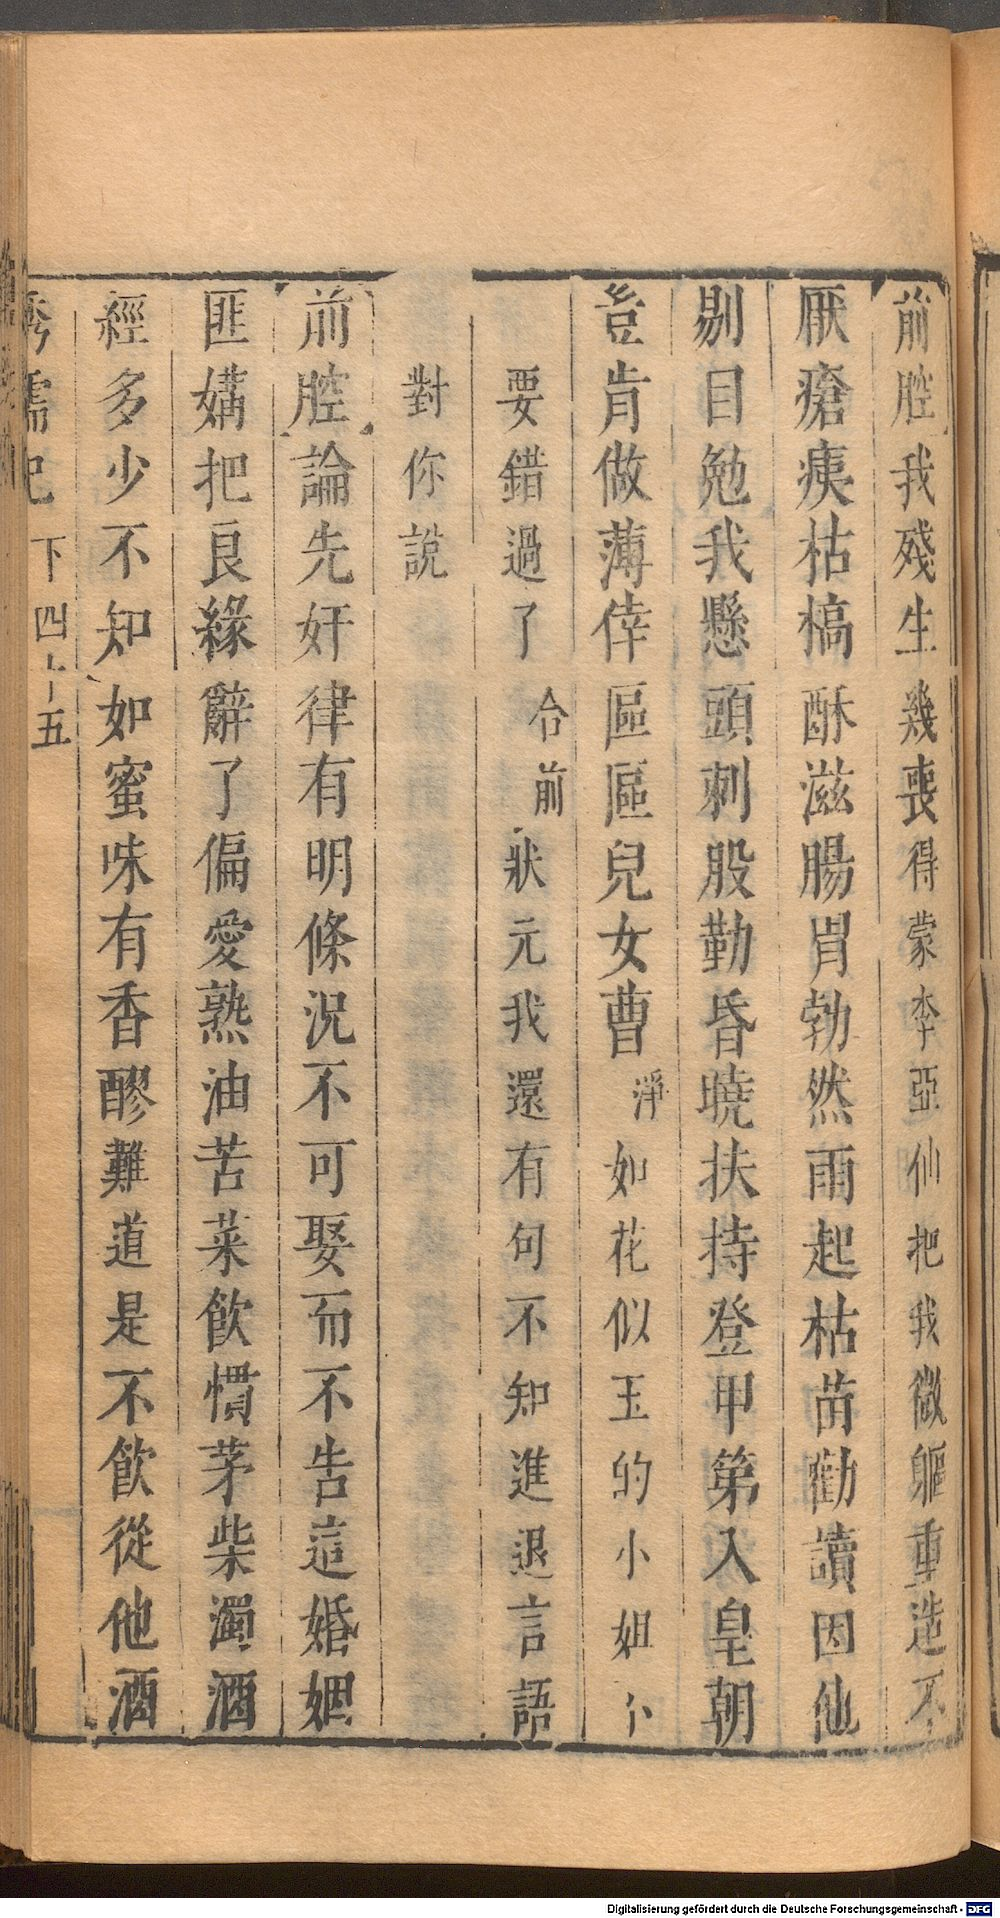 前腔我殘生幾喪得蒙李亞仙把我微軀重造不
厭瘡痍枯槁酥滋腸胃勃然雨起枯苗勸讀因仙
剔目勉我懸頭刺股勤昏曉扶持登甲第入皇朝
豈肯做薄倖區區兒女曹淨如花似玉的小姐卜
要錯過了合前狀元我還有句不知進退言語
對你説
前腔論先奸律有明條況不可娶而不告這婚姻
匪媾把良緣辭了偏愛熟油苦菜飲慣茅柴濁酒
經多少不知如蜜味有香醪難道是不飲從他酒
繡襦記 下 四十五
Digitalisierung gefördert durch die Deutsche Forschungsgemeinschaft - DFG